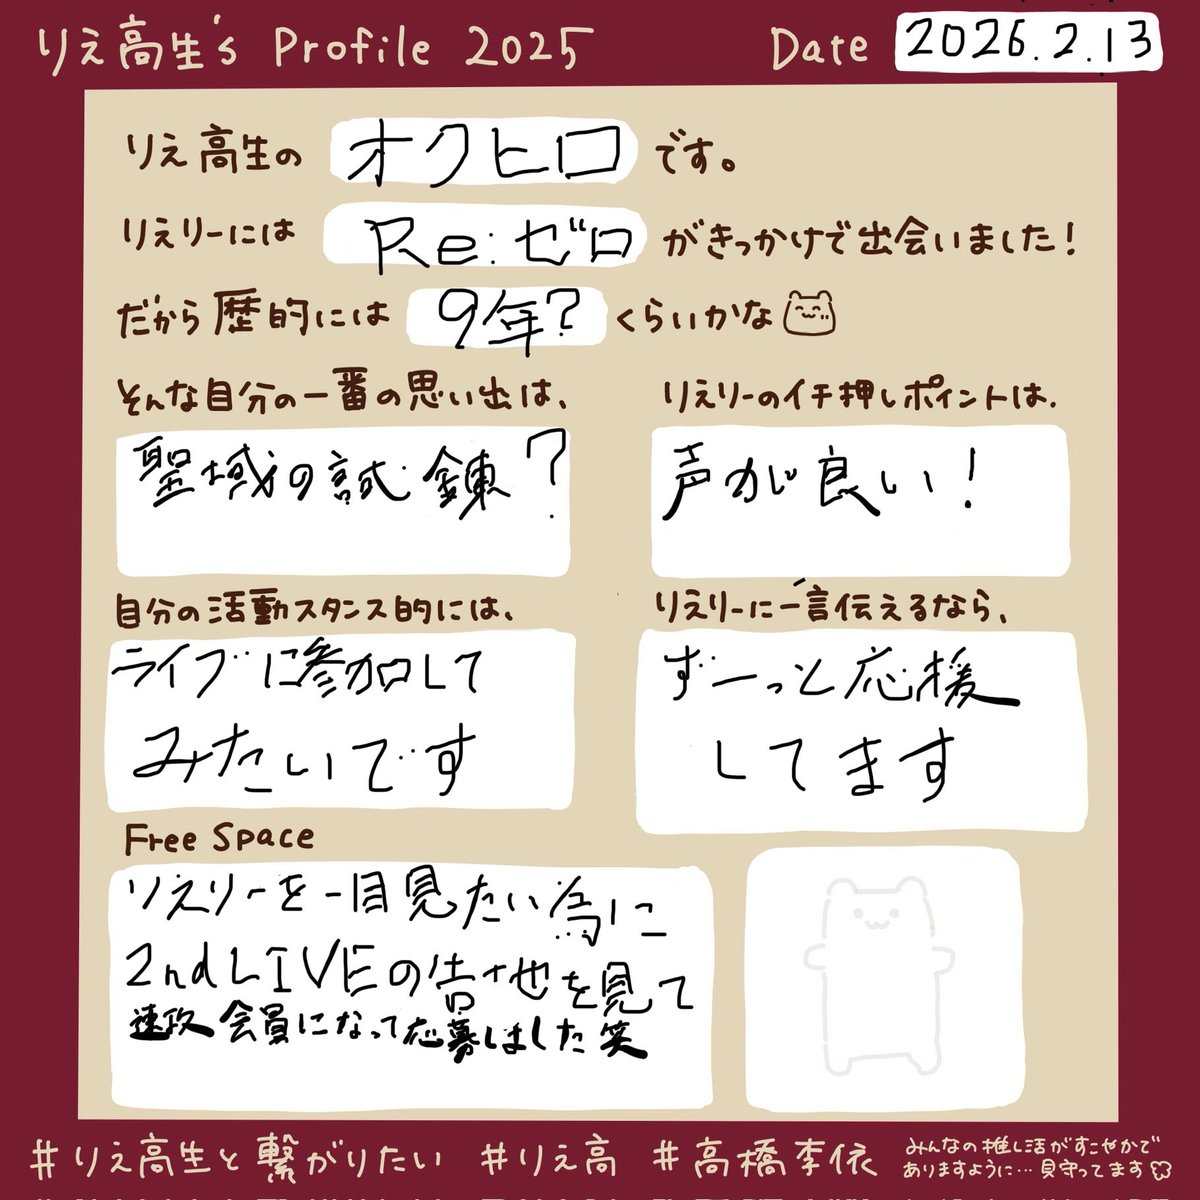 りえ高生's Profile 2025 Date 2026.2.13
りえ高生の オクヒロ です。
りえりーには Re:ゼロ がきっかけで出会いました!
だから歴的には 9年? くらいかな
そんな自分の一番の思い出は、
聖域の試錬?
りえりーのイチ押しポイントは、
声が良い!
自分の活動スタンス的には、
ライブに参加して
みたいです
りえりーに一言伝えるなら、
ずーっと応援
してます
Free Space
りえりーを一目見たい為に
2nd LIVEの告せを見て
速攻会員になって応募しました笑
#りえ高生と繋がりたい #りえ高 #高橋李依
みんなの推し活がすこやかで
ありますように…見守ってます